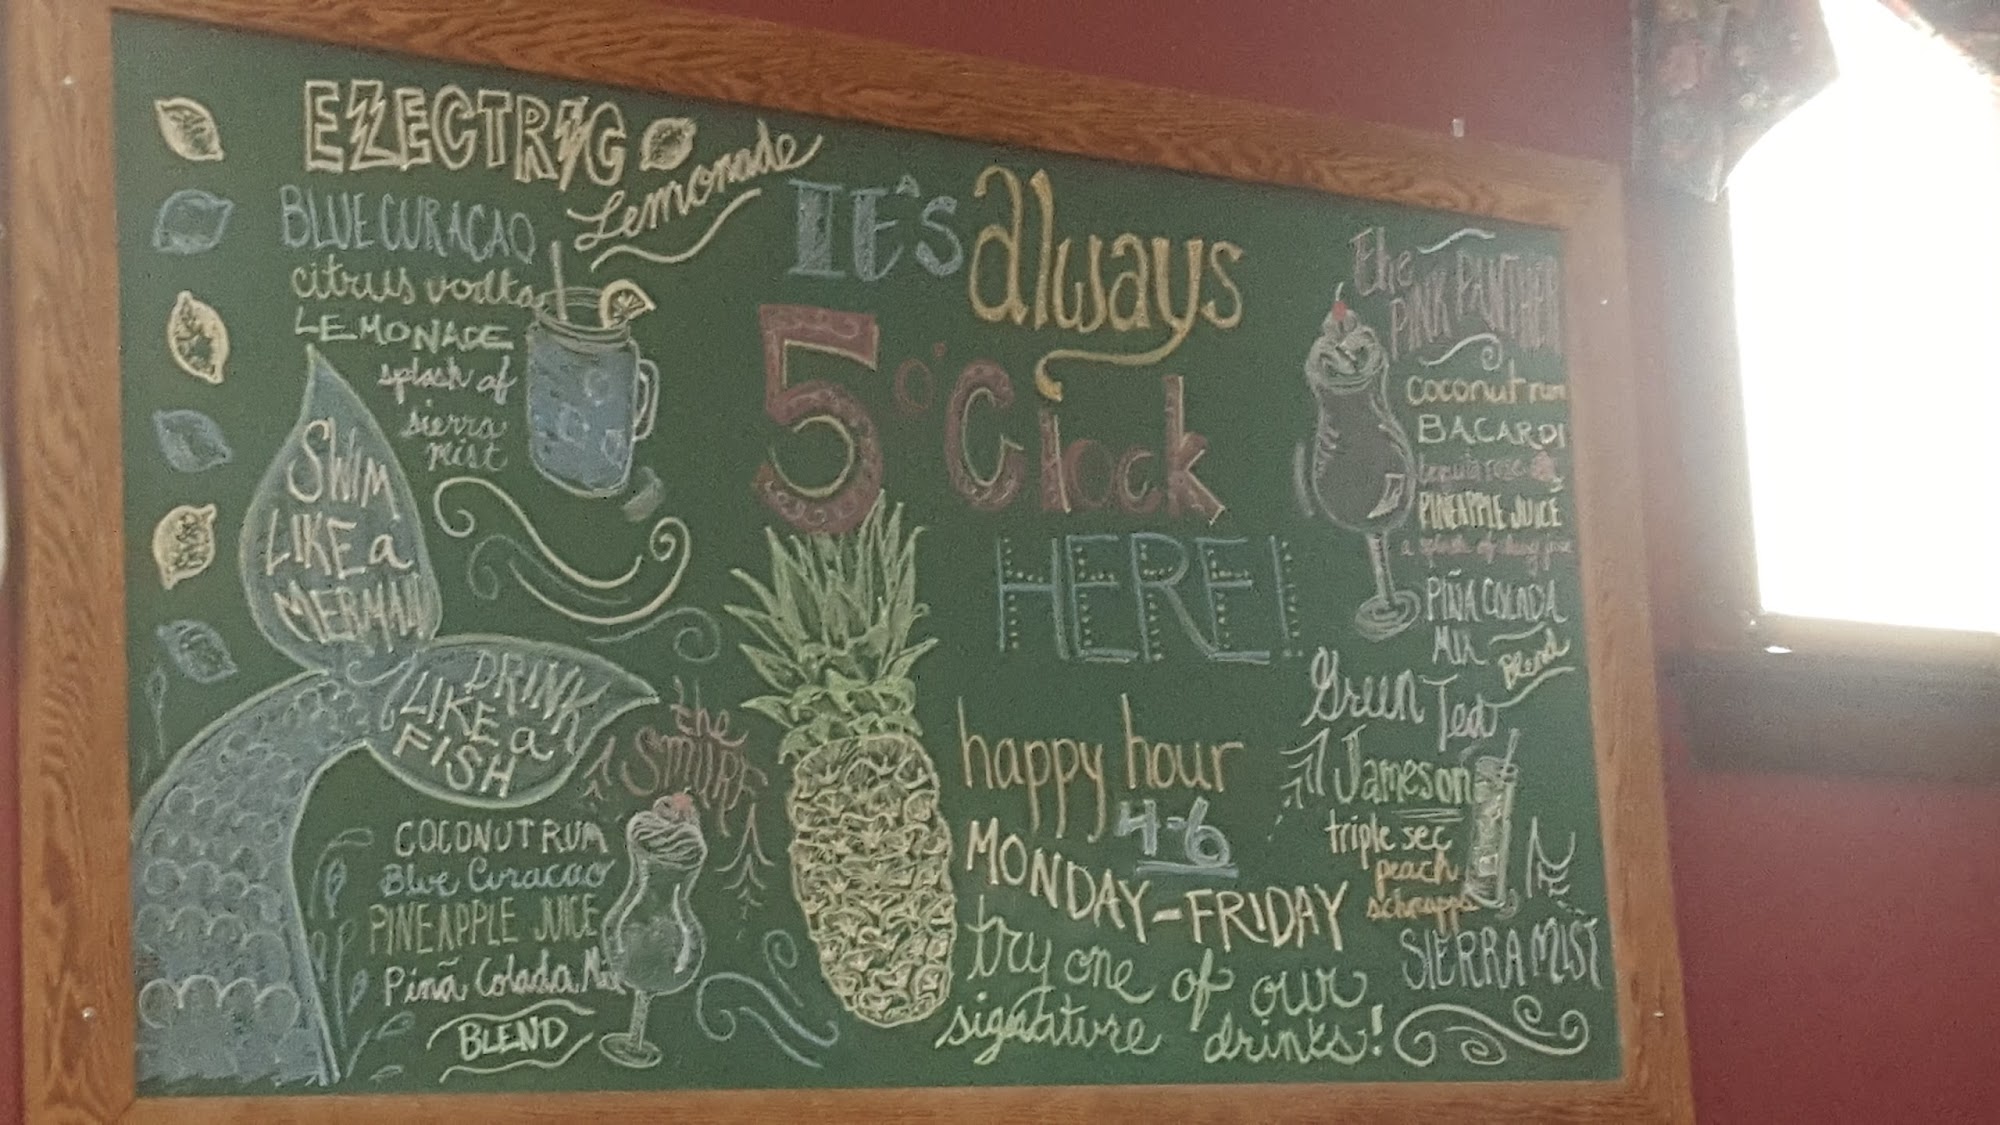 ELECTRIC
Lemonade
BLUE CURAÇAO
citrus vodka
LEMONADE
splash of
sierra
mist
SWIM
LIKE a
MERMAID
DRINK
LIKE a
FISH
the
SMURF
COCONUT RUM
Blue Curacao
PINEAPPLE JUICE
Pinã Colada Mix
BLEND
It's always
5 o'Clock
HERE!
happy hour
4-6
MONDAY-FRIDAY
try one of our
signature drinks!
the
PINK PANTHER
coconut rum
BACARDI
PINEAPPLE JUICE
a splash of
PIÑA COLADA
MIX
Blend
Green Tea
Jameson
triple sec
peach
schnapps
SIERRA MIST